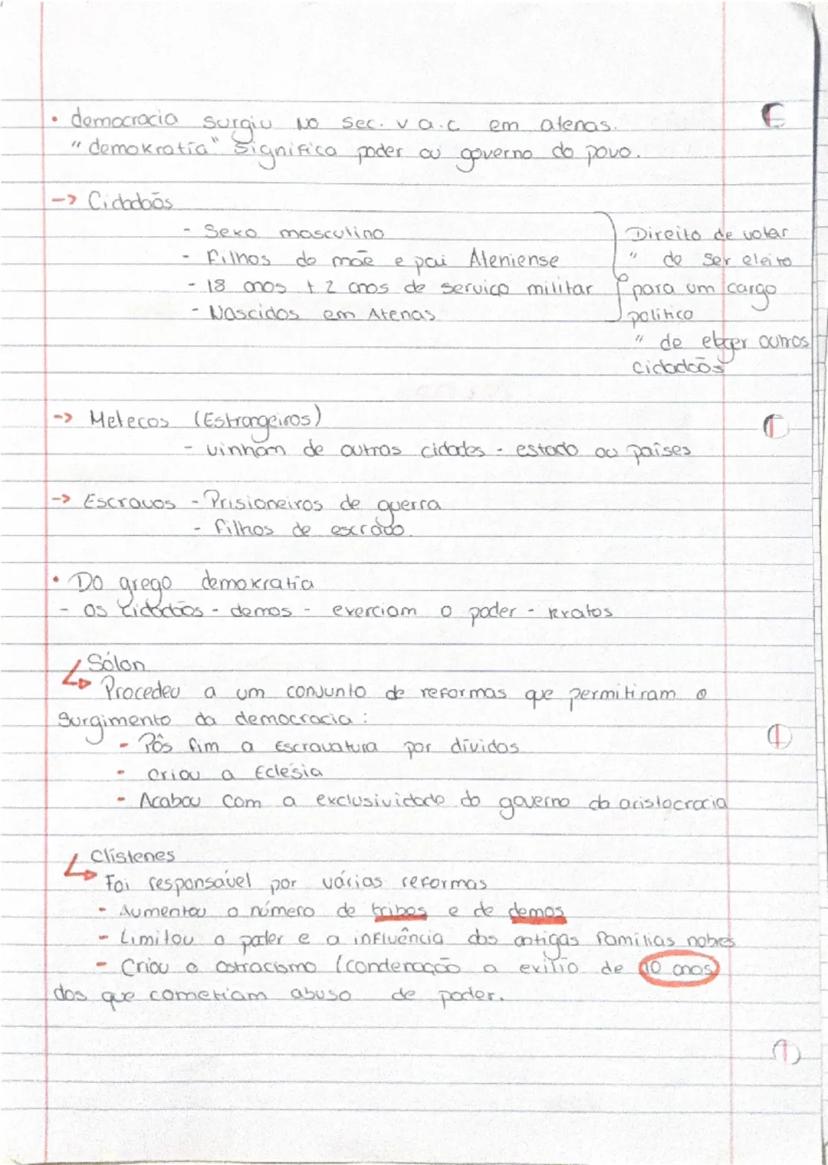 • democracia surgiu no sec. v a.c em atenas.
"demokratia" significa poder ou governo do povo.
-> Cidadãos
- Sexo masculino
- Filhos de mãe e pai Ateniense
- 18 anos + 2 anos de serviço militar
- Nascidos em Atenas
Direito de votar
" de ser eleito
para um cargo
politico
" de eleger outros
cidadãos
-> Metecos (Estrangeiros)
- vinham de outras cidades - estado ou países
-> Escravos - Prisioneiros de guerra
- filhos de escravo.
• Do grego demokratia
- os cidadãos - demos - exerciam o poder - kratos
Sólon
Procedeu a um conjunto de reformas que permitiram o
surgimento da democracia:
- Pôs fim a Escravatura por dívidas
- criou a Eclésia
- Acabou com a exclusividade do governo da aristocracia
Clístenes
Foi responsável por várias reformas
- Aumentou o número de tribos e de demos
- Limitou o poder e a influência das antigas famílias nobres
- Criou o ostracismo (condenação a exílio de 10 anos
dos que cometiam abuso de poder.